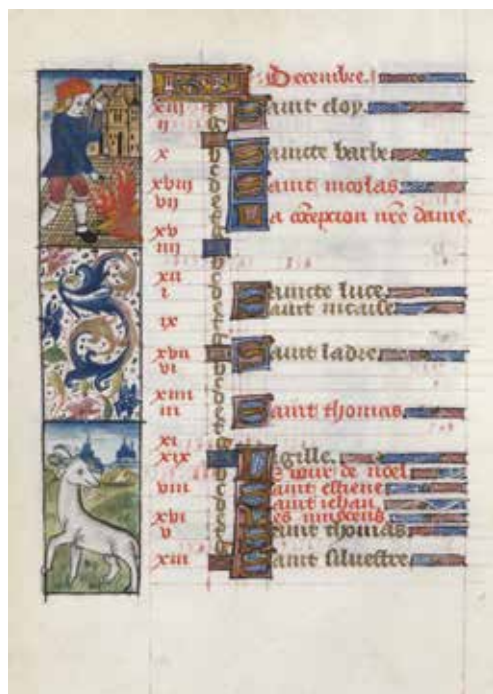 KL Decembre.
xiij Saint eloy.
ij
x Saincte barbe
xviij Saint nicolas.
vij
La cõcepcion nr̃e dame.
xv
iiij
xij Saincte luce.
i Saint nicaise
ix
xvii Saint ladre.
vi
xiiii
iii Saint thomas.
xi
xix Vigille.
Le iour de noel
viii Saint estiene
Saint iehan
xvi Les innocens
v Saint thomas.
xiii Saint siluestre.